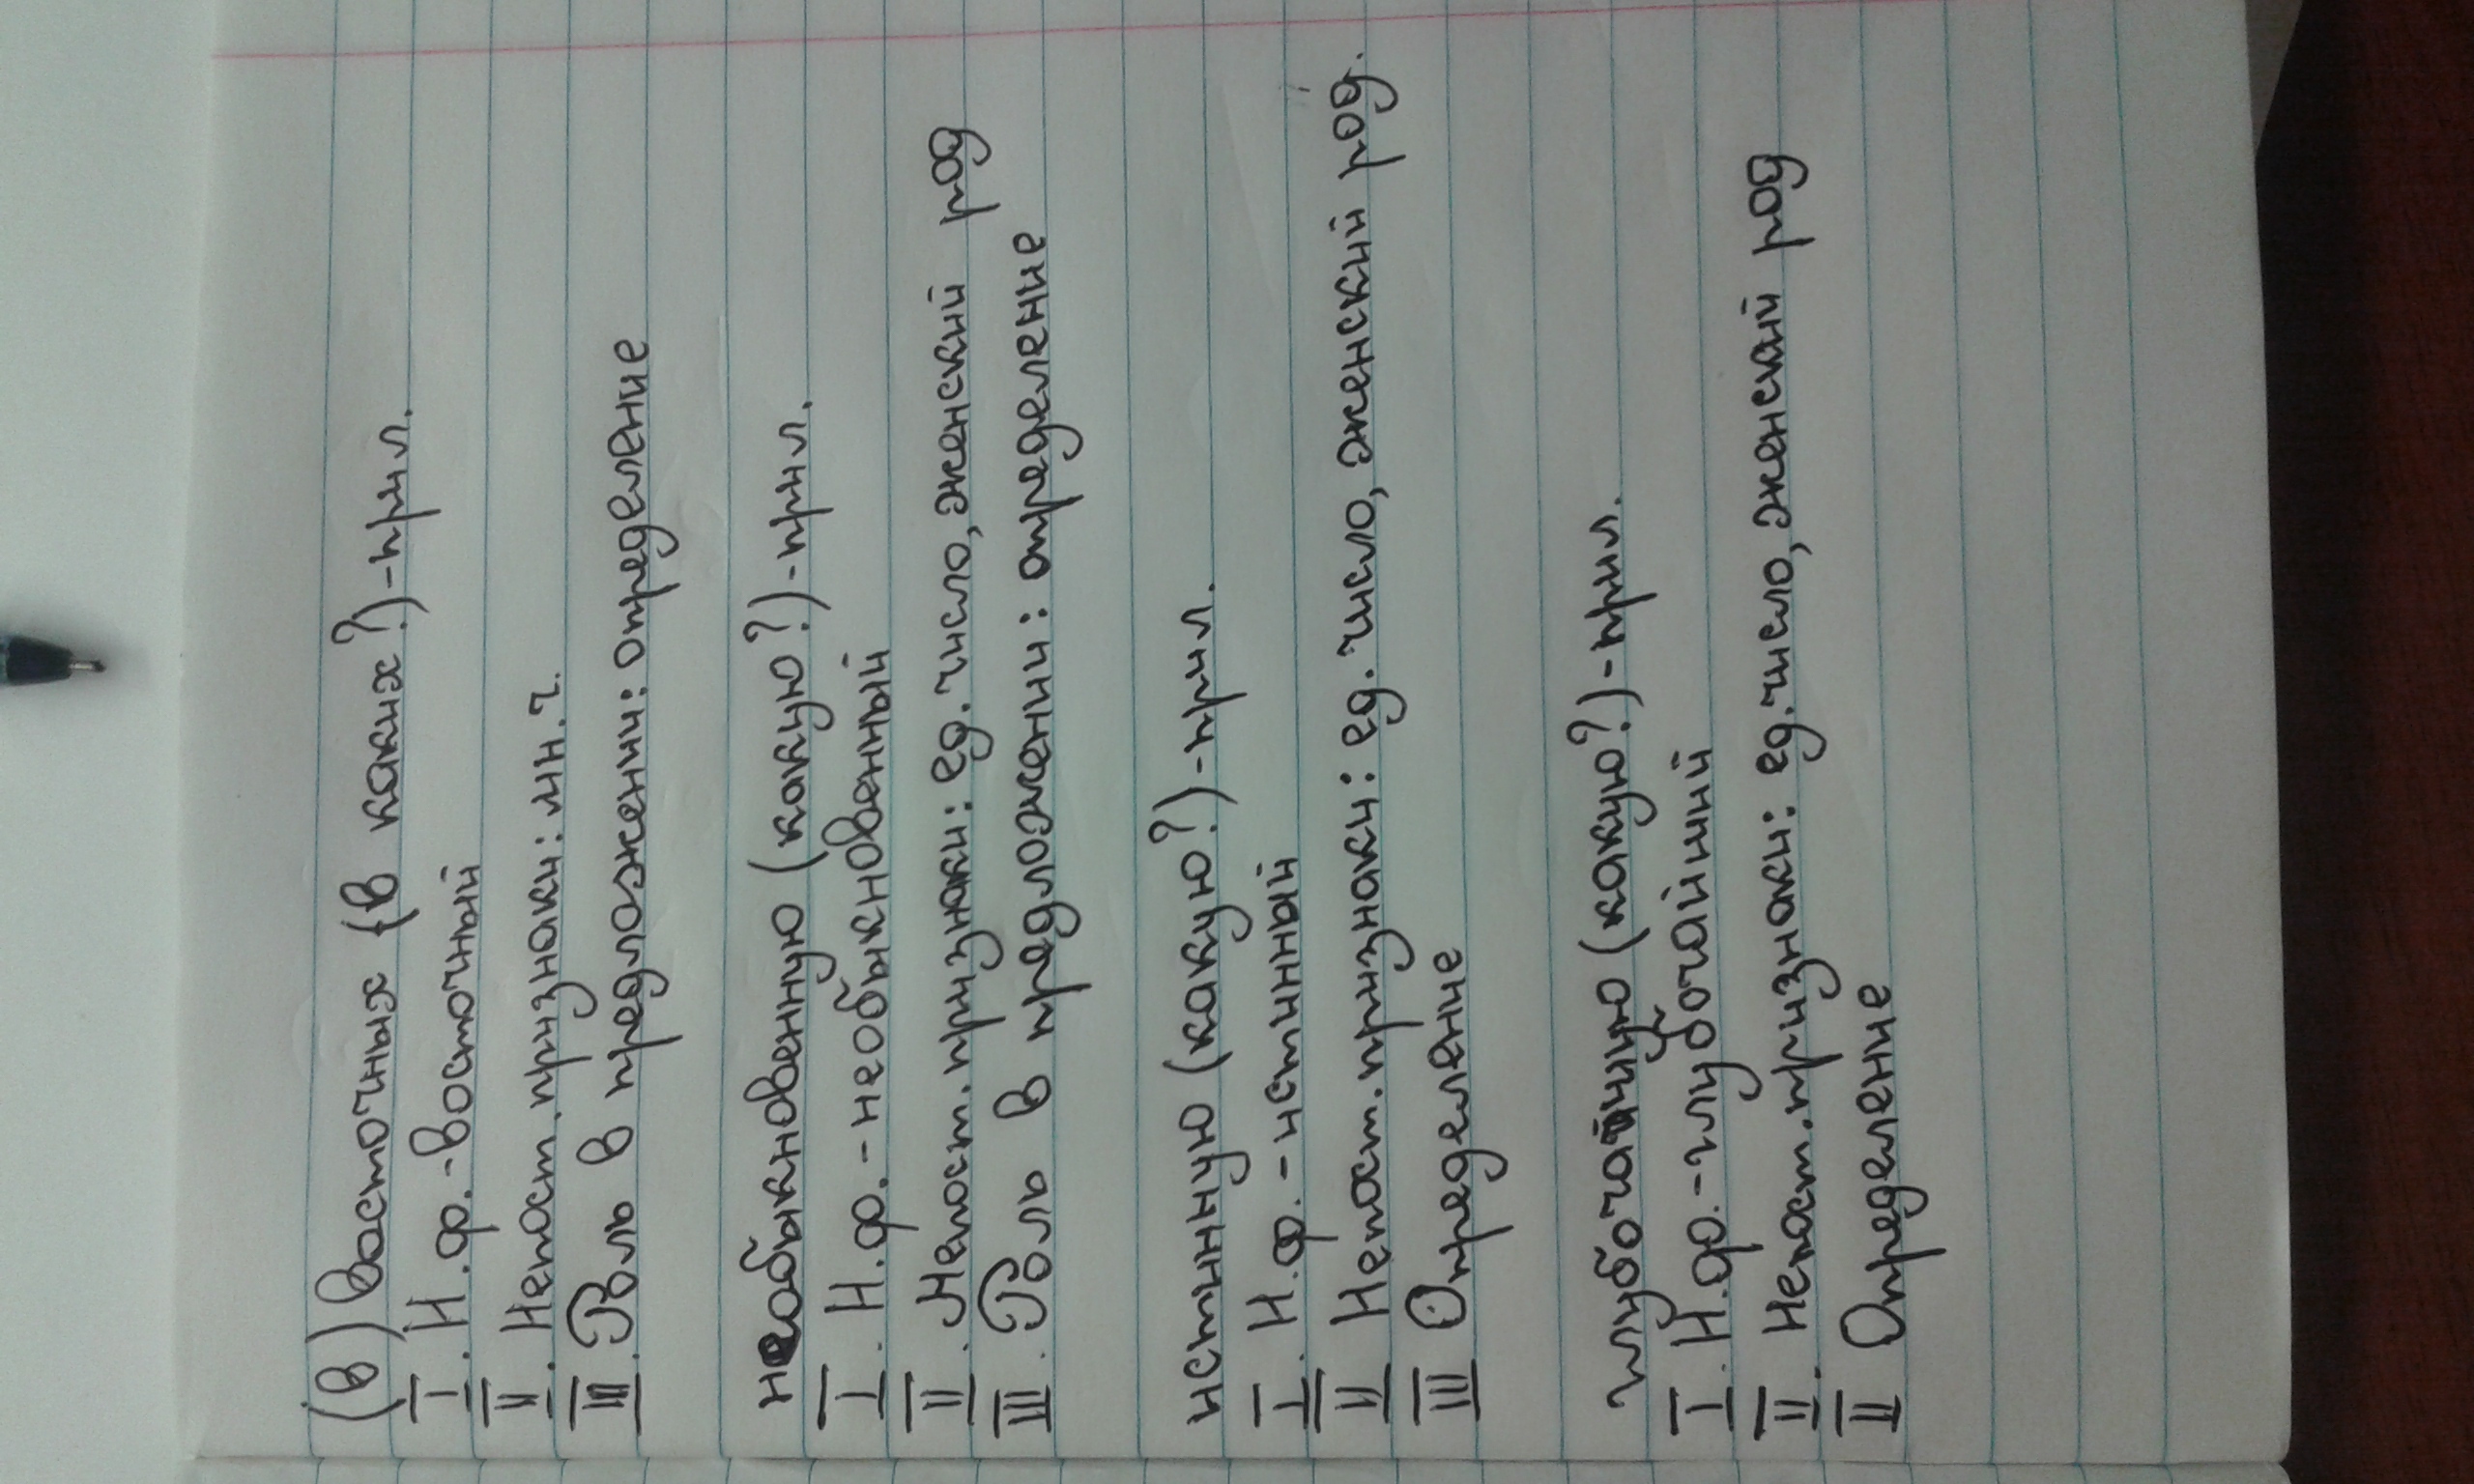 (в) Восточных (в каких?)-прил.
I. Н.ф.-восточный
II. Непост.признаки: мн.ч.
III. Роль в предложении: определение
необыкновенную (какую?)-прил.
I. Н.ф.-необыкновенный
II. Непост.признаки: ед.число, женский род
III. Роль в предложении: определение
истинную (какую?)-прил.
I. Н.ф.-истинный
II Непост.признаки: ед.число, женский род.
III Определение
глубочайшую (какую?)-прил.
I. Н.ф.-глубочайший
II. Непост.признаки: ед.число, женский род
II Определение